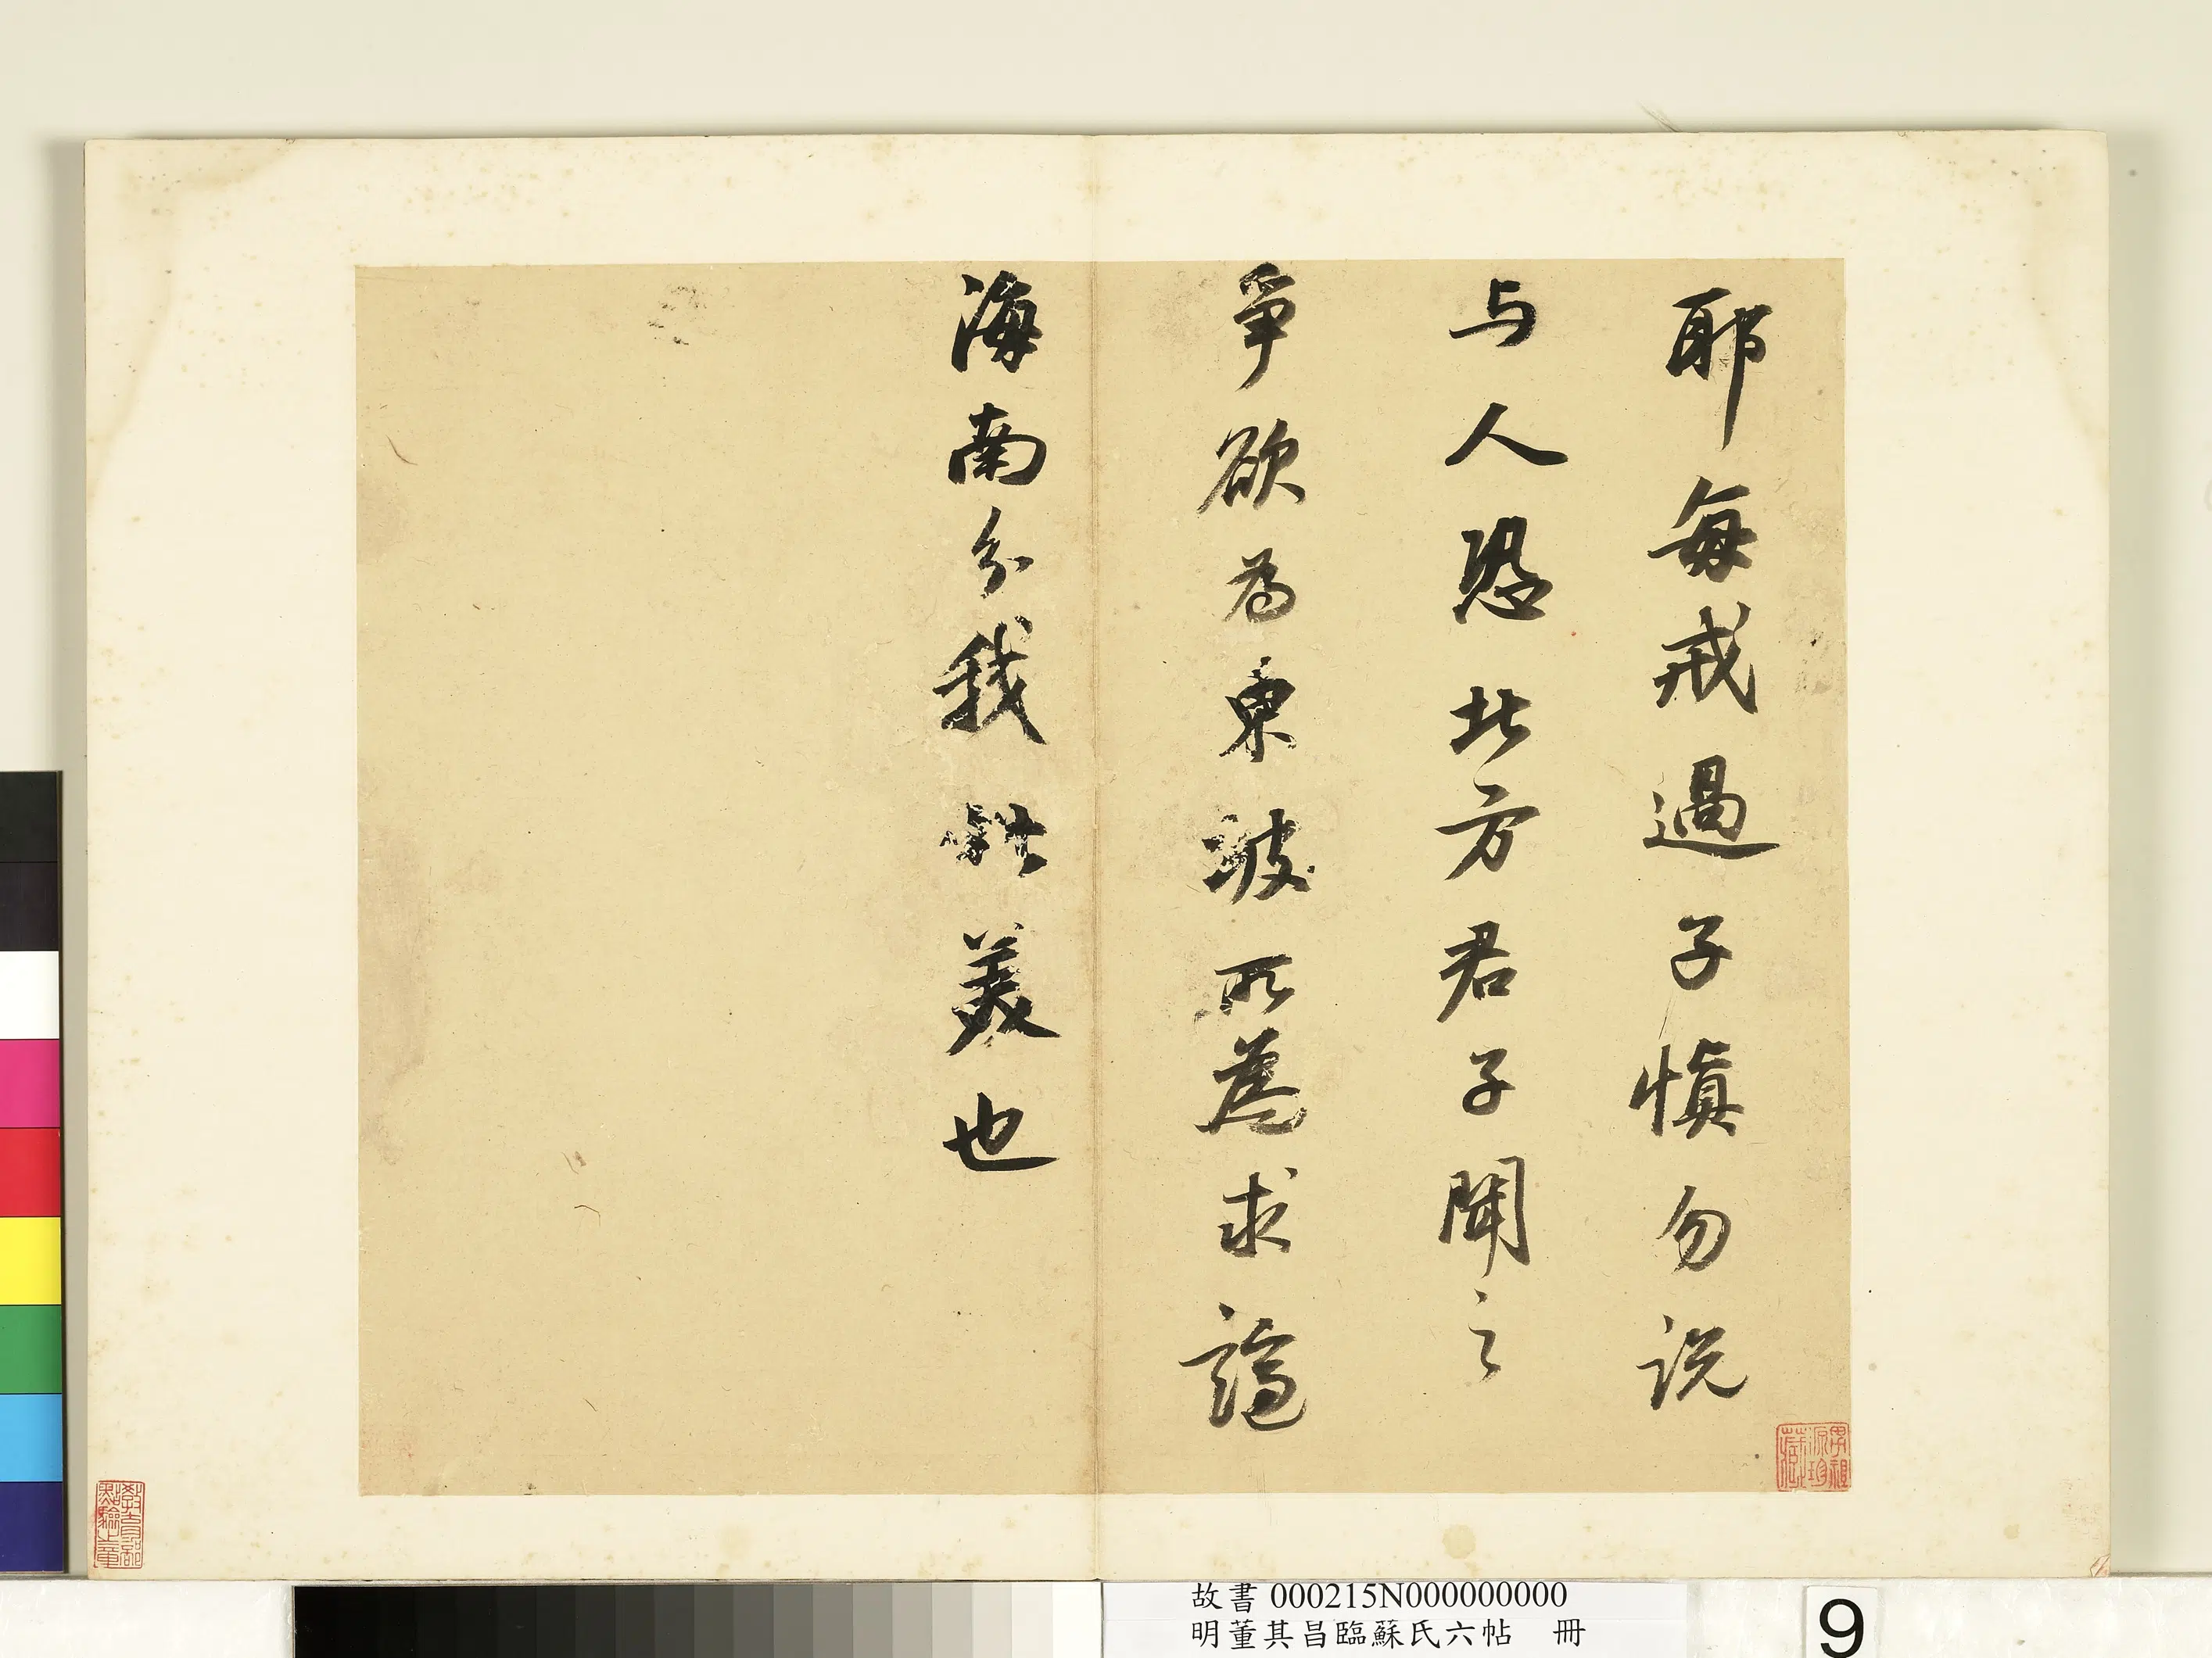 耶每戒過子慎勿說
与人恐北方君子聞之
爭欲為東坡所為求謫
海南分我此美也
故書 000215N000000000
明董其昌臨蘇氏六帖 冊
9
教育部
點驗之章